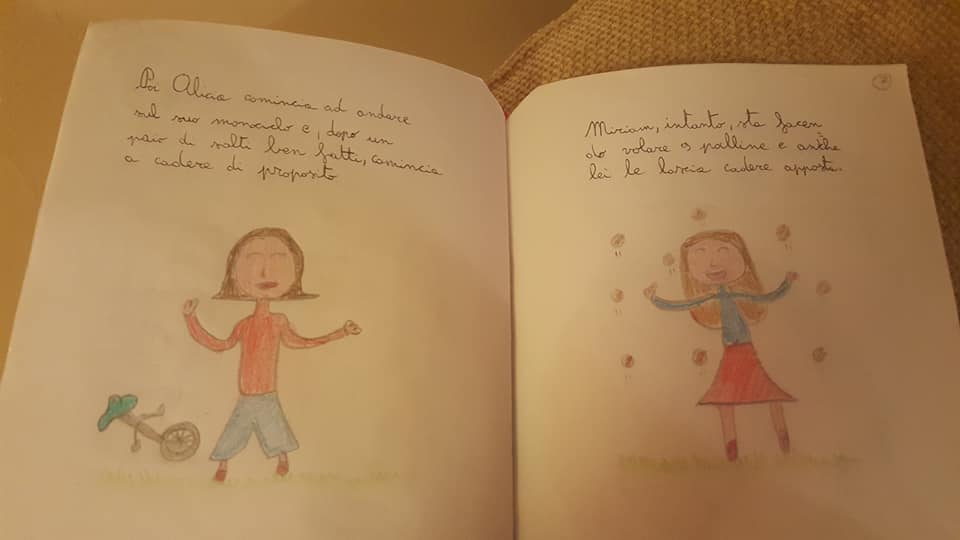 Poi Alicia comincia ad andare
sul suo monociclo e, dopo un
paio di salti ben fatti, comincia
a cadere di proposito
Miriam, intanto, sta facen
do volare 9 palline e anche
lei le lascia cadere apposta.